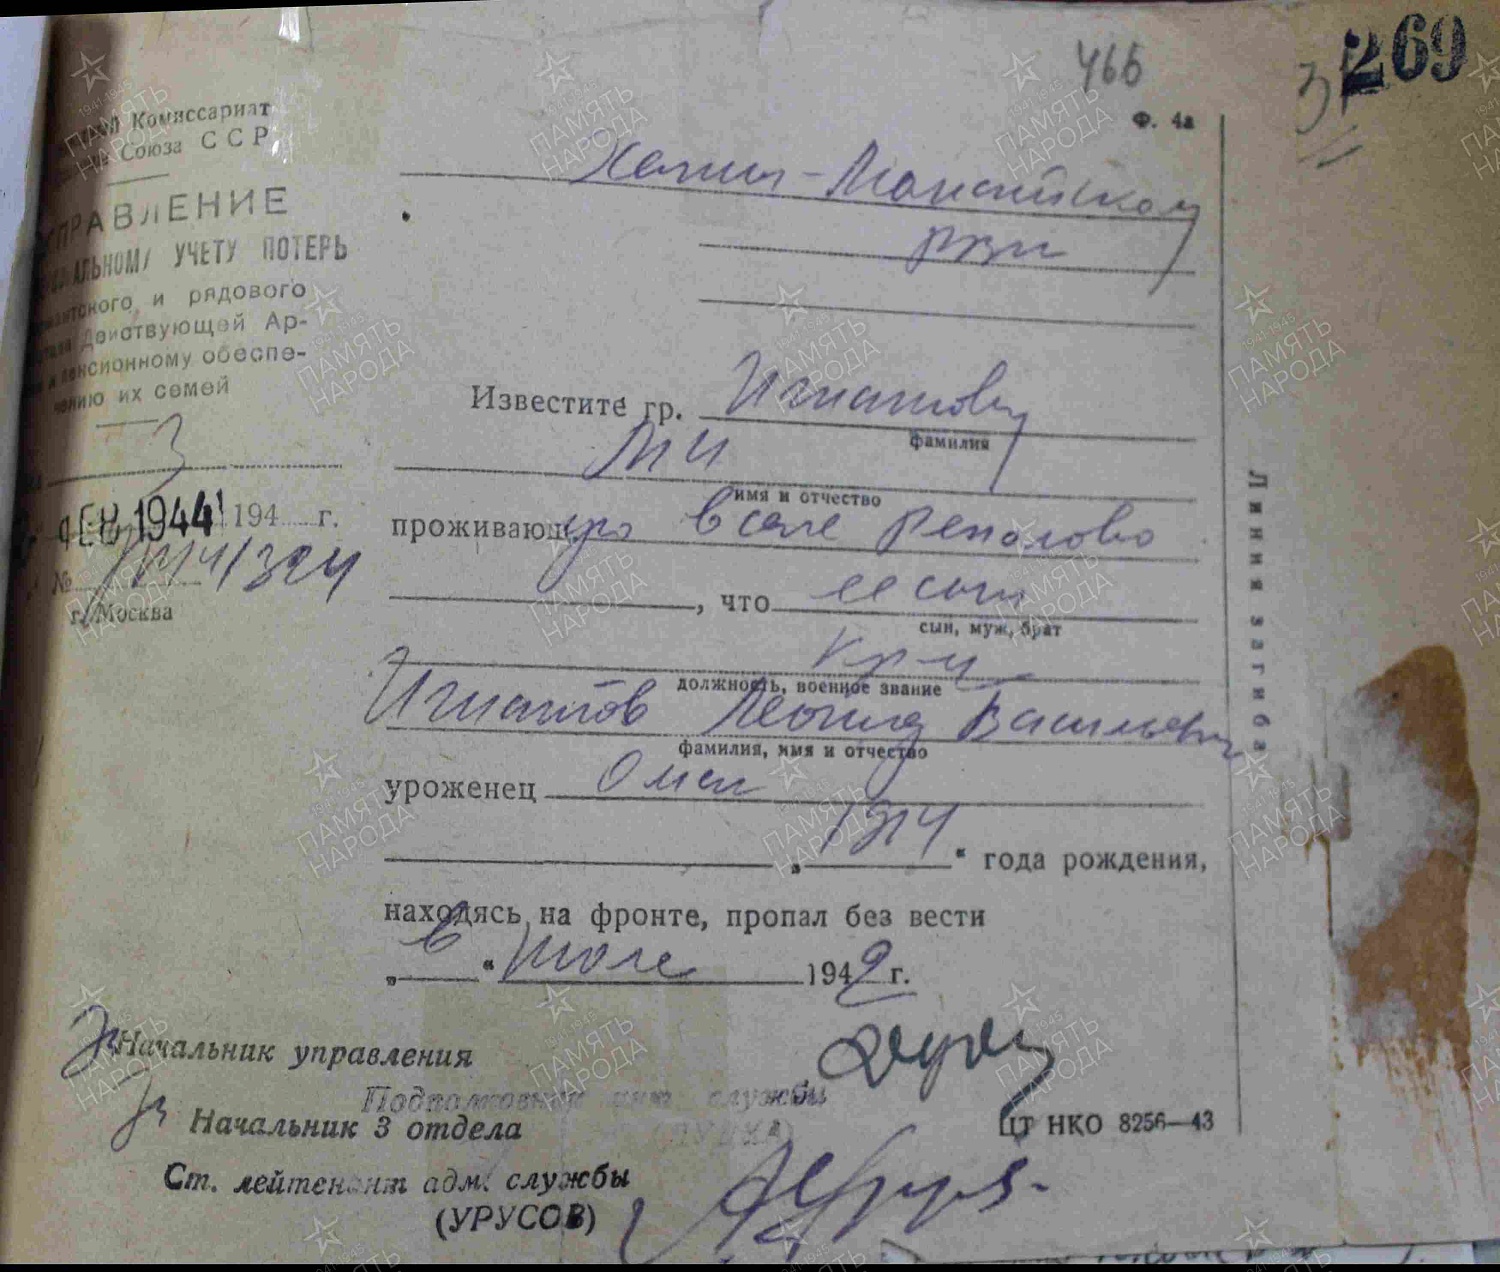 269
466
Ф. 4а
Комиссариат
Союза ССР
УПРАВЛЕНИЕ
УЧЕТУ ПОТЕРЬ
и рядового
действующей Ар-
пенсионному обеспе-
чению их семей
3
ФЕВ 1944 194 г.
№
г. Москва
Ханты-Мансийскому
РВК
Известите гр. Игнатову
фамилия
М И
имя и отчество
проживающую в селе Реполово
, что ее сын
сын, муж, брат
кр-ц
должность, военное звание
Игнатов Леонид Васильевич
фамилия, имя и отчество
уроженец Омск
„ 1914 “ года рождения,
находясь на фронте, пропал без вести
„ в “ июле 1942 г.
Линия загиба
Начальник управления
Подполковник инт. службы
Начальник 3 отдела
Ст. лейтенант адм. службы
(УРУСОВ)
ЦТ НКО 8256—43
ПАМЯТЬ
НАРОДА
1941-1945